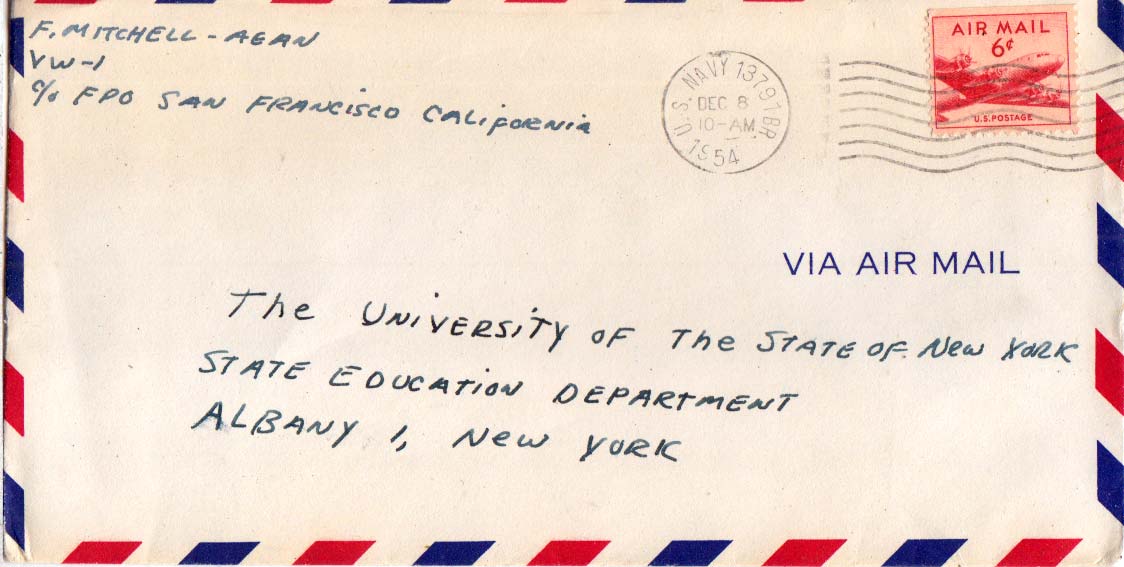 F. MITCHELL - AGAN
VW-1
c/o FPO SAN FRANCISCO CALIFORNIA
U.S. NAVY 13797 BR.
DEC 8
10-AM
1954
AIR MAIL
6¢
U.S. POSTAGE
VIA AIR MAIL
The UNIVERSITY OF The STATE OF New YORK
STATE EDUCATION DEPARTMENT
ALBANY 1, New YORK